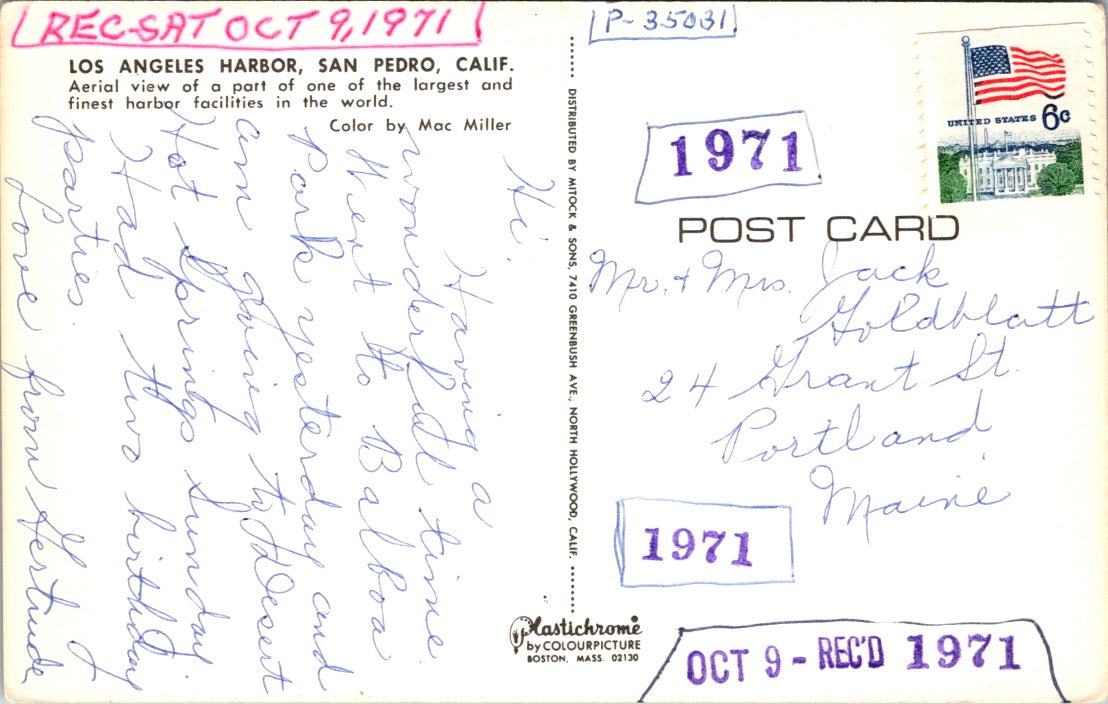 REC-SAT OCT 9, 1971
LOS ANGELES HARBOR, SAN PEDRO, CALIF.
Aerial view of a part of one of the largest and
finest harbor facilities in the world.
Color by Mac Miller
Hi.
Having a
wonderful time.
Went to Balboa
Park yesterday and
am going to Desert
Hot Springs Sunday
Had two birthday
parties.
Love from Gertrude
DISTRIBUTED BY MITOCK & SONS, 7410 GREENBUSH AVE., NORTH HOLLYWOOD, CALIF.
Plastichrome
by COLOURPICTURE
BOSTON, MASS. 02130
P-35031
UNITED STATES 6c
1971
POST CARD
Mr. + Mrs. Jack
Goldblatt
24 Grant St.
Portland
Maine
1971
OCT 9 - REC'D 1971